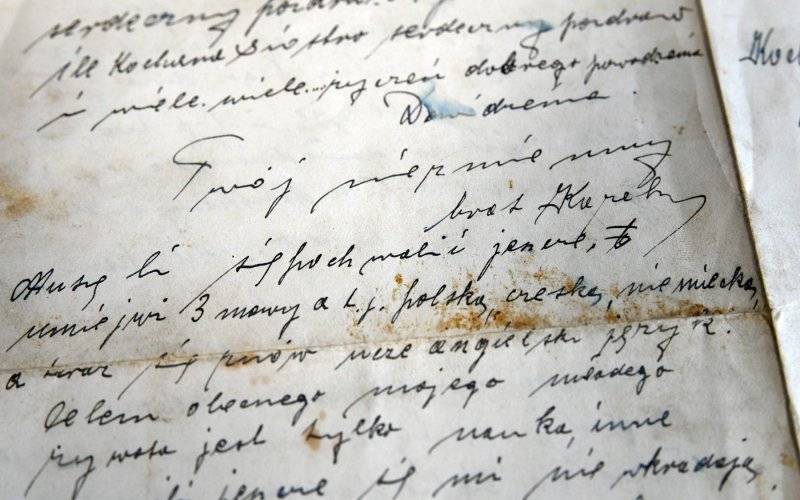 serdeczny pozdra
ill Kochana Siostro serdeczny pozdraw
i wiele wiele...ryczeń dobrego powodzenia
Dowidzenia.
Twój niezmienny
brat Karel
Muszę Ci się pochwalić jeszcze, że
umię już 3 mowy a t.j. polską, czeską, niemiecką,
a zaraz się znów uczę angielski język.
Celem obecnego mojego młodego
żywota jest tylko nauka, inne
jeszcze się mi nie wkradają
Koch